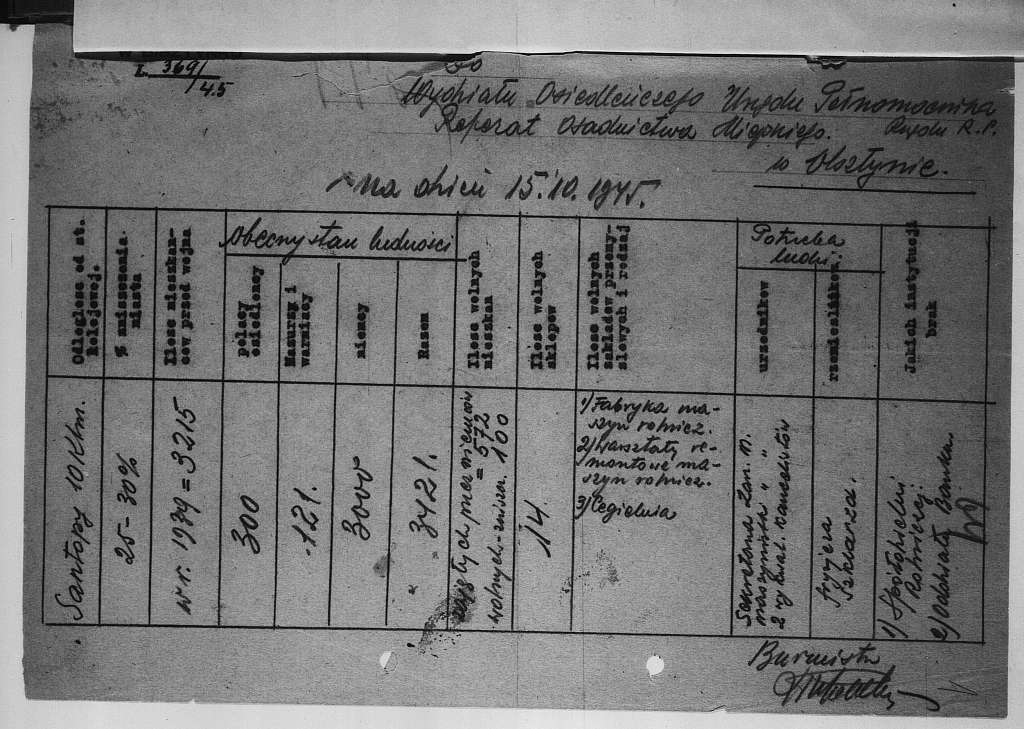 L. 369/45
Do
Wydziału Osiedleńczego Urzędu Pełnomocnika
Referat Osadnictwa Miejskiego. Rządu R.P.
w Olsztynie.
na dzień 15.10.1945.
Odleglosc od st.
Kolejowej.
% zniszczenia
miasta
Ilosc mieszkan-
cow przed wojna
Obecny stan ludności
polacy
osiedlency
Mazurzy i
warmiacy
niemcy
Razem
Ilosc wolnych
mieszkan
Ilosc wolnych
sklepow
Ilosc wolnych
zakladow przemy-
slowych i rodzaj
Potrzeba
ludzi:
urzednikow
rzemieslnikow
Jakich instytucji
brak
Santopy 10 Klm.
25-30%
w r. 1939 = 3215
300
121.
3000
3421.
zajętych przez niemców
= 572
wolnych-zniszcz. 100
14.
1) Fabryka ma-
szyn rolnicz.
2) warsztaty re-
montowe ma-
szyn rolnicz.
3) Cegielnia
Sekretarza Zarz. M.
maszynistka " "
fryzjera
Szklarza.
1) Spółdzielni
Rolniczej
2) Oddziału Banku.
Burmistrz